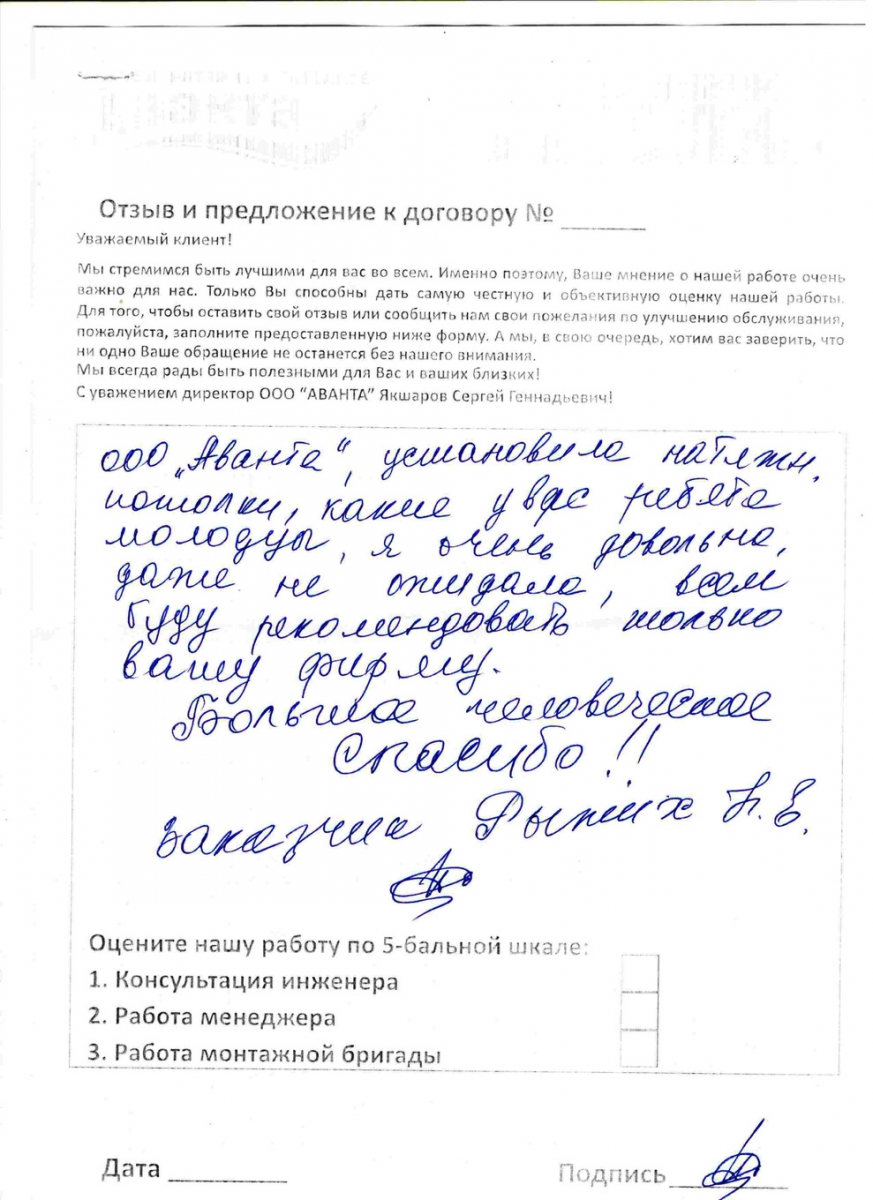 Отзыв и предложение к договору № ______
Уважаемый клиент!
Мы стремимся быть лучшими для вас во всем. Именно поэтому, Ваше мнение о нашей работе очень
важно для нас. Только Вы способны дать самую честную и объективную оценку нашей работы.
Для того, чтобы оставить свой отзыв или сообщить нам свои пожелания по улучшению обслуживания,
пожалуйста, заполните предоставленную ниже форму. А мы, в свою очередь, хотим вас заверить, что
ни одно Ваше обращение не останется без нашего внимания.
Мы всегда рады быть полезными для Вас и ваших близких!
С уважением директор ООО “АВАНТА” Якшаров Сергей Геннадьевич!
ООО „Аванта“, установила натяжн.
потолки, какие у вас ребята
молодцы, я очень довольна,
даже не ожидала, всем
буду рекомендовать только
вашу фирму.
Большое человеческое
Спасибо!!
Заказчик Рыжих Н.Е.
Оцените нашу работу по 5-бальной шкале:
1. Консультация инженера
2. Работа менеджера
3. Работа монтажной бригады
Дата ________ Подпись ________